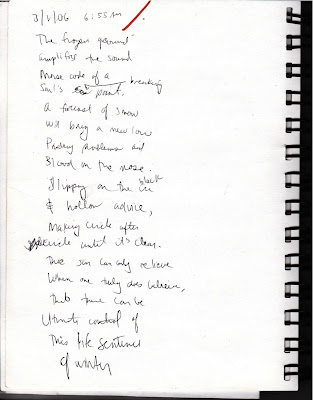 3/1/06 6:55 AM
The frozen ground
amplifies the sound
Morse code of a breaking
Soul's point.
A forecast of snow
will bring a new low
Probing problems and
Blood on the nose.
Slipping on the black ice
& hollow advice,
Making circle after
circle until it's clear.
The sun can only relieve
When one truly does believe,
That time can be
Ultimate control of
This life sentence
of winter